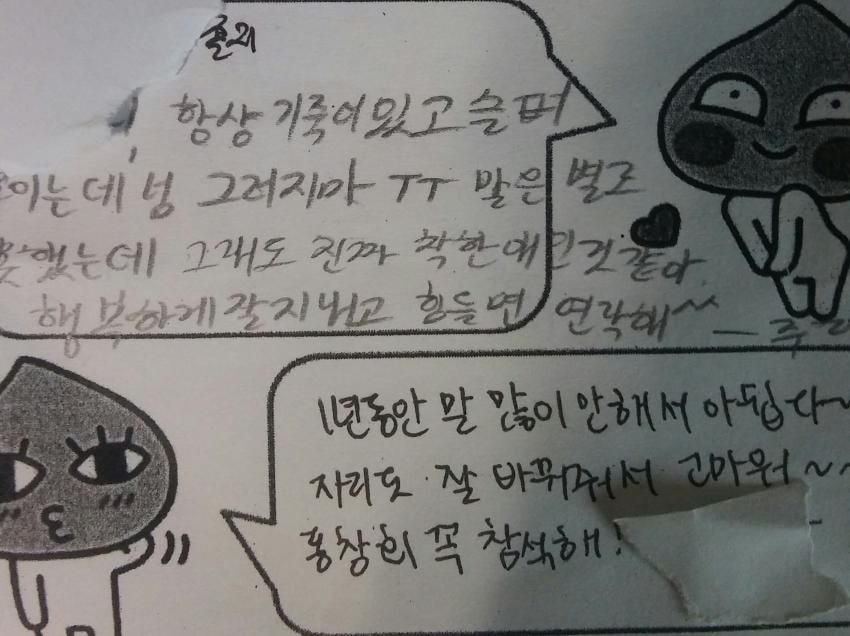 항상 기죽어있고 슬퍼
이는데 넝 그러지마 ㅜㅜ 말은 별로
못했는데 그래도 진짜 착한애인것같아
행복하게 잘지내고 힘들면 연락해~
1년동안 말 많이 안해서 아쉽다~
자리도 잘 바꿔줘서 고마워~~
홍창회 꼭 참석해!